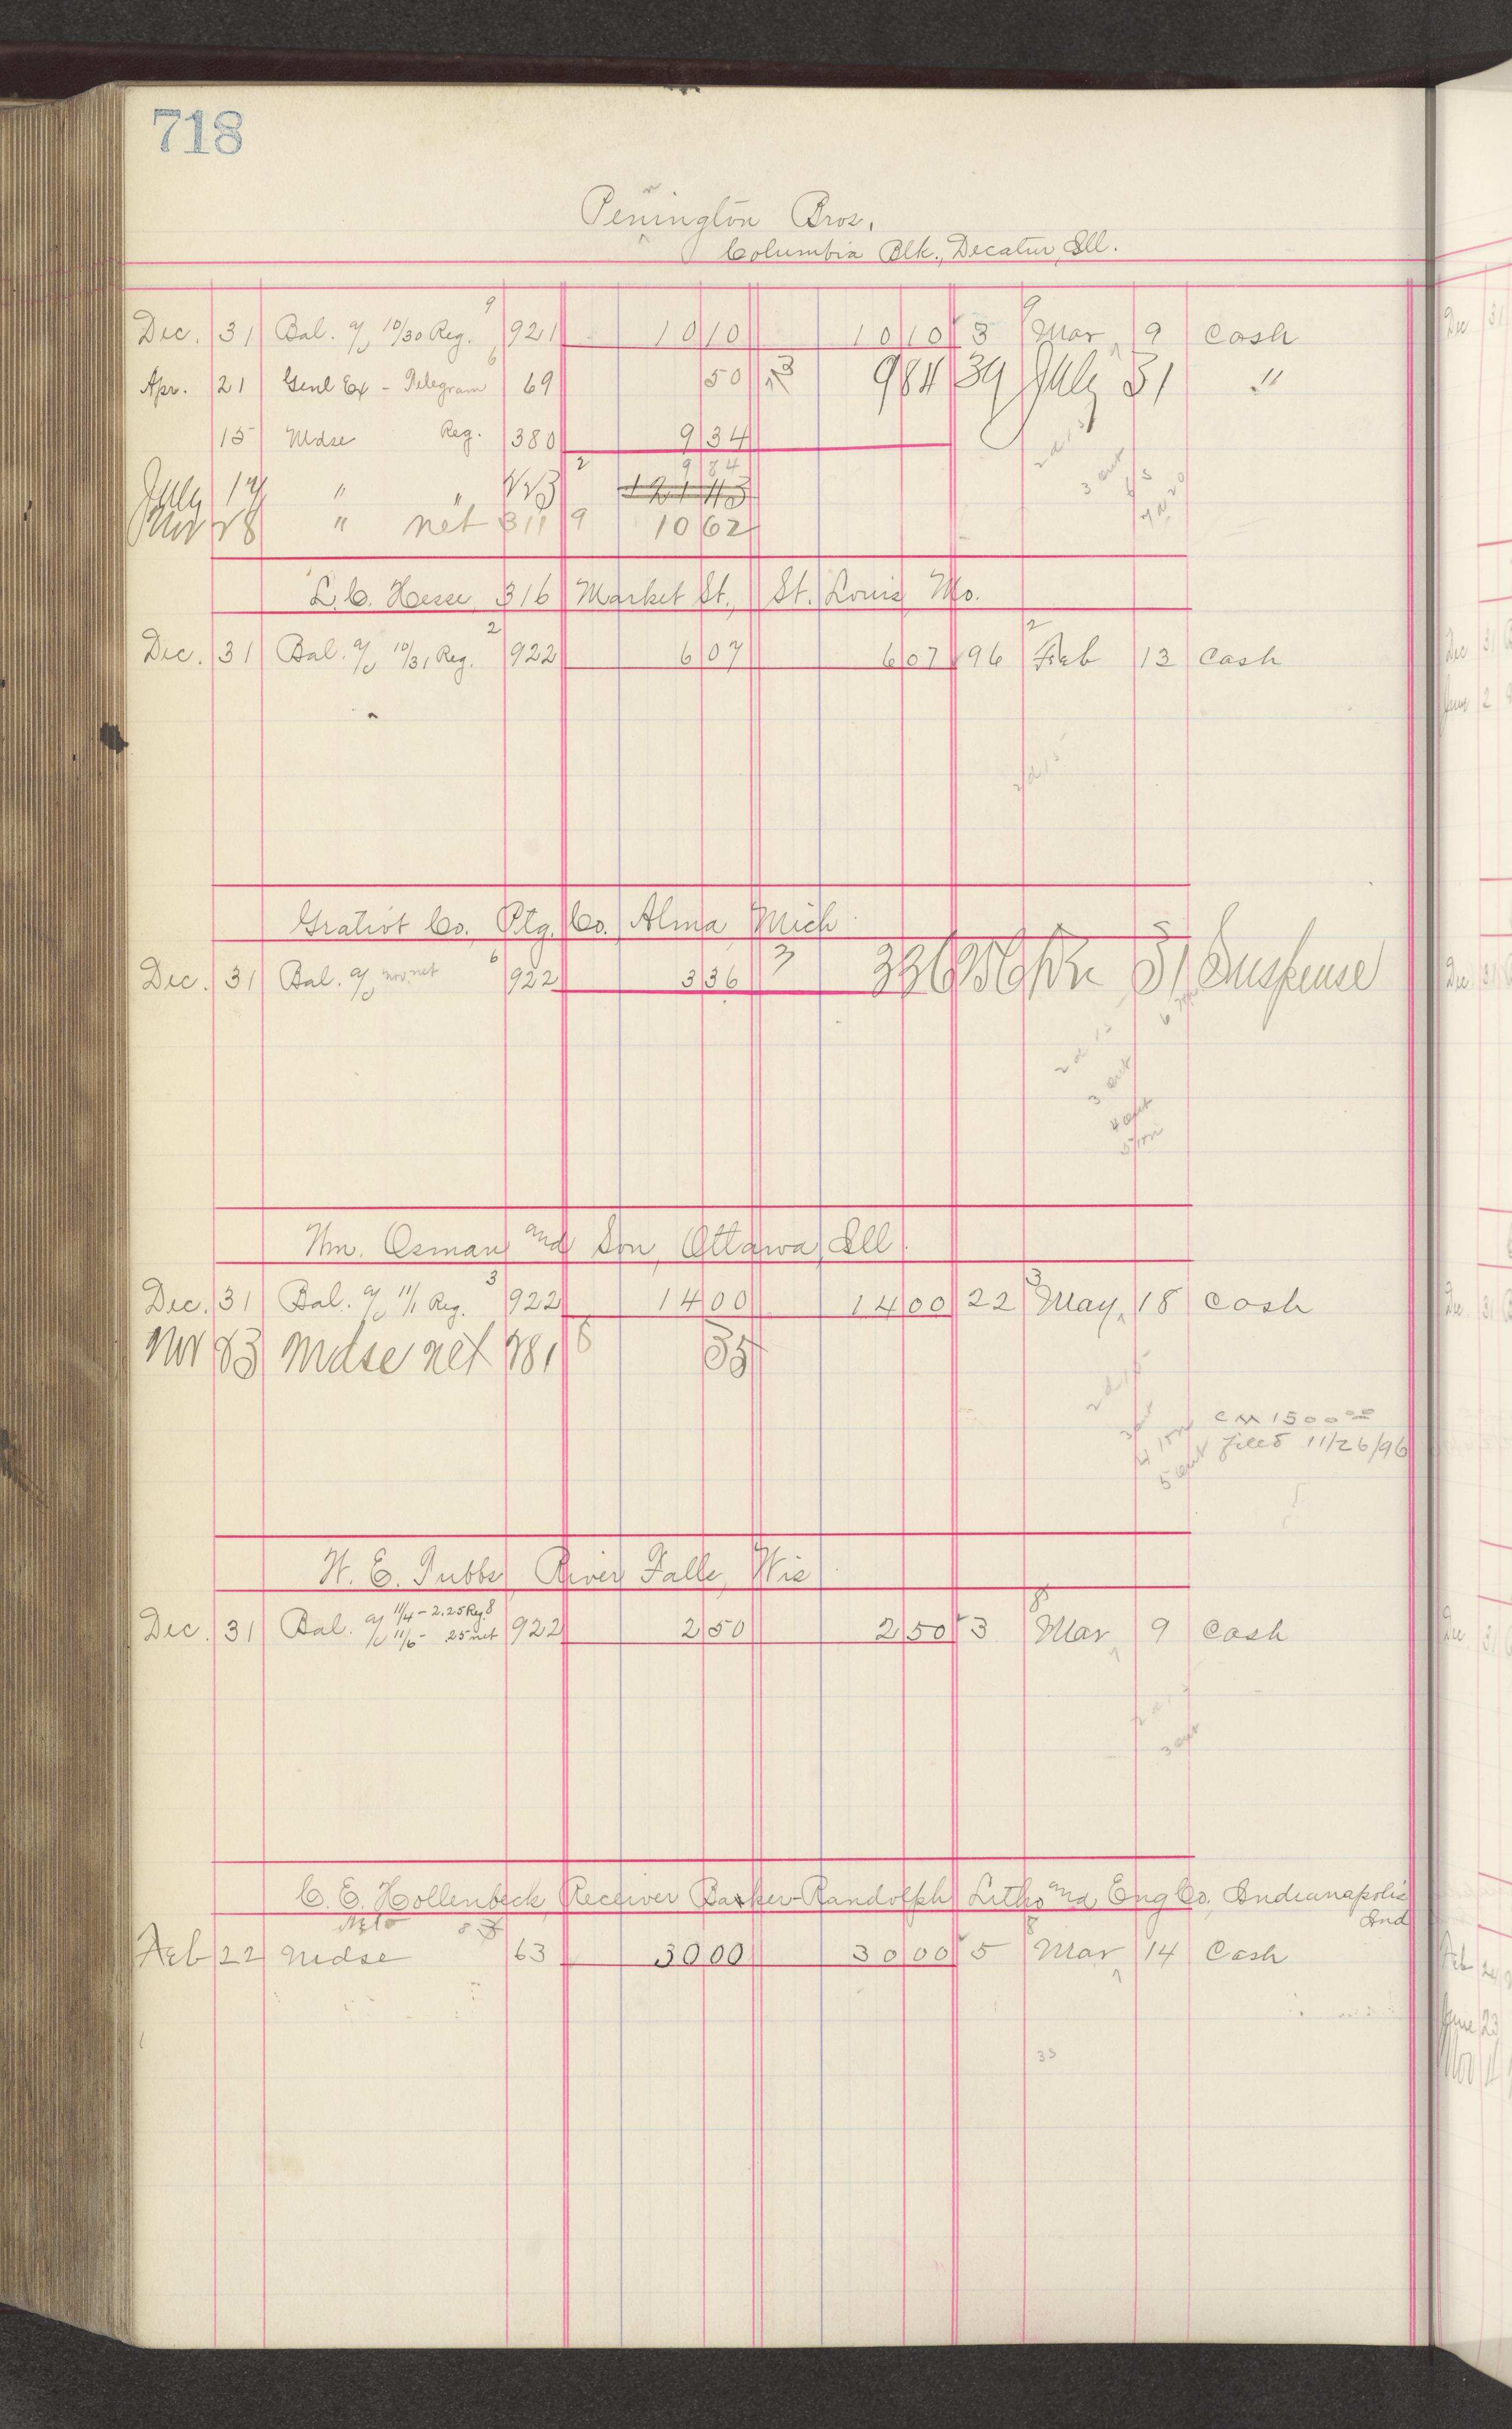 718
Penington Bros.
Columbia Blk., Decatur, Ill.
Dec. 31 Bal. a/c 10/30 Reg. 9 921 10 10 10 10 3 9 Mar 9 Cash
Apr. 21 Genl Ex - Telegram 6 69 50 3 9 84 39 July 31 "
15 Mdse Reg. 380 9 34
9 84
July 14 " " 2 121 43
Nov 28 " net 311 9 10 62
L. C. Hesse, 316 Market St., St. Louis, Mo.
Dec. 31 Bal. a/c 10/31 Reg. 2 922 6 07 6 07 96 2 Feb 13 Cash
Gratiot Co. Ptg. Co. Alma, Mich
Dec. 31 Bal. a/c nov. net 6 922 3 36 3 3 36 31 Suspense
Wm. Osman and Son, Ottawa, Ill.
Dec. 31 Bal. a/c 11/1 Reg. 3 922 14 00 14 00 22 3 May 18 Cash
Nov 23 Mdse net 281 8 35
1500 00
filed 11/26/96
W. E. Tubbs, River Falls, Wis
Dec. 31 Bal. a/c 11/4 - 2.25 Reg. 8 922 2 50 2 50 3 8 Mar 9 Cash
11/6 - 25 net
C. E. Hollenbeck, Receiver Barker-Randolph Litho and Eng Co. Indianapolis
Ind
Feb 22 Mdse 63 30 00 30 00 5 8 Mar 14 Cash
35